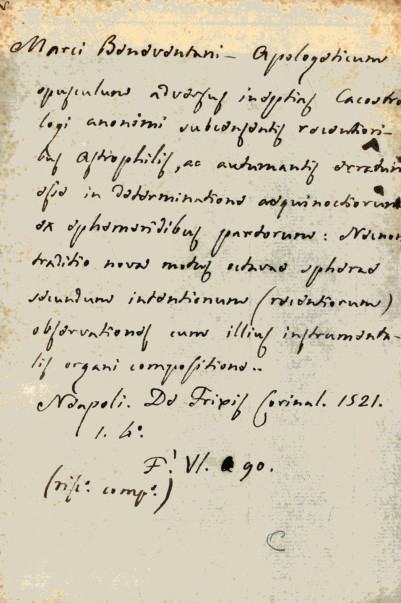 Marci Beneventani – Apologeticum
opusculum adversus ineptias Cacostro
logi anonimi subcensentis recentiori-
bus Astrophilis, ac autumantis erratum
esse in determinatione aequinoctiorum
ex ephemeridibus predorum: Necnon
traditio novae motus octavae spherae
secundum intentionum (recentiorum)
observationes cum illius instrumenta-
lis organi compositione..
Neapoli. De Frixis Corinal. 1521.
1. 4º.
F! VI. 90.
(risº. compº.)
C